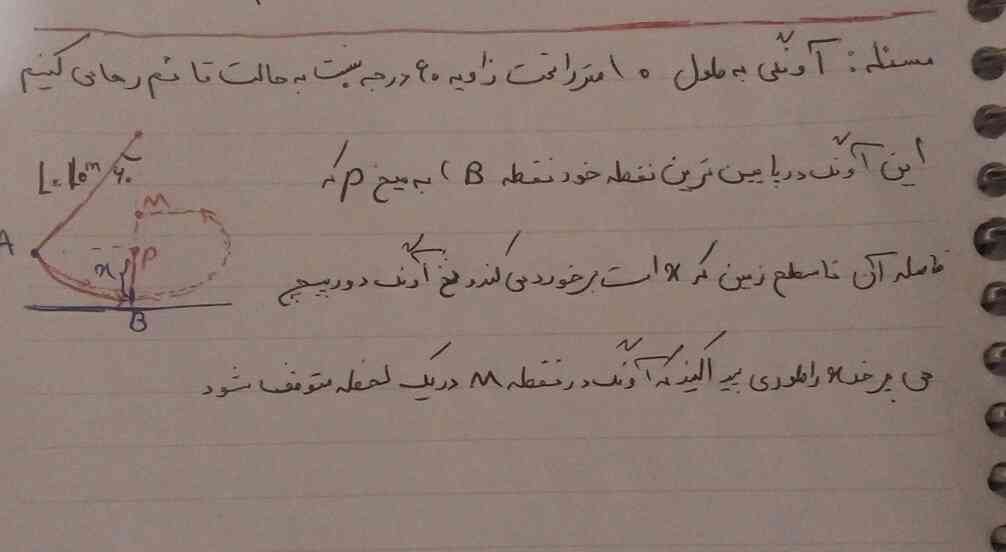 مسئله: آونگی به طول ۱۰ متر را تحت زاویه ۶۰ درجه نسبت به حالت قائم رها می کنیم
L=10m ۶۰
این آونگ در پایین ترین نقطه خود (نقطه B) به میخ P که
M
A
P
x
فاصله آن تا سطح زمین که x است برخورد می کند و نخ آونگ دور میخ
B
می چرخد x را طوری پیدا کنید که آونگ در نقطه M در یک لحظه متوقف شود